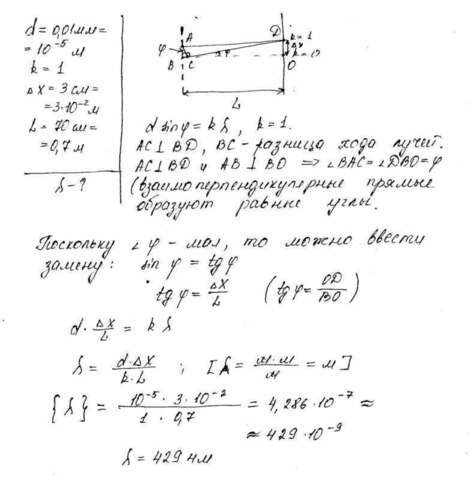 d = 0,01мм =
= 10⁻⁵ м
k = 1
Δx = 3 см =
= 3·10⁻² м
L = 70 см =
= 0,7 м
λ - ?
A
D
k = 1
Δx
φ
φ
k = 0
B
C
O
L
d sin φ = k λ, k = 1.
AC ⊥ BD, BC - разница хода лучей.
AC ⊥ BD и AB ⊥ BO ⇒ ∠BAC = ∠DBO = φ
(взаимоперпендикулярные прямые
образуют равные углы.
Поскольку ∠φ - мал, то можно ввести
замену: sin φ = tg φ
tg φ = Δx/L (tg φ = OD/BO)
d · Δx/L = k λ
λ = d·Δx/k·L ; [λ = м·м/м = м]
{λ} = 10⁻⁵ · 3 · 10⁻²/1 · 0,7 = 4,286 · 10⁻⁷ ≈
≈ 429 · 10⁻⁹
λ = 429 нм